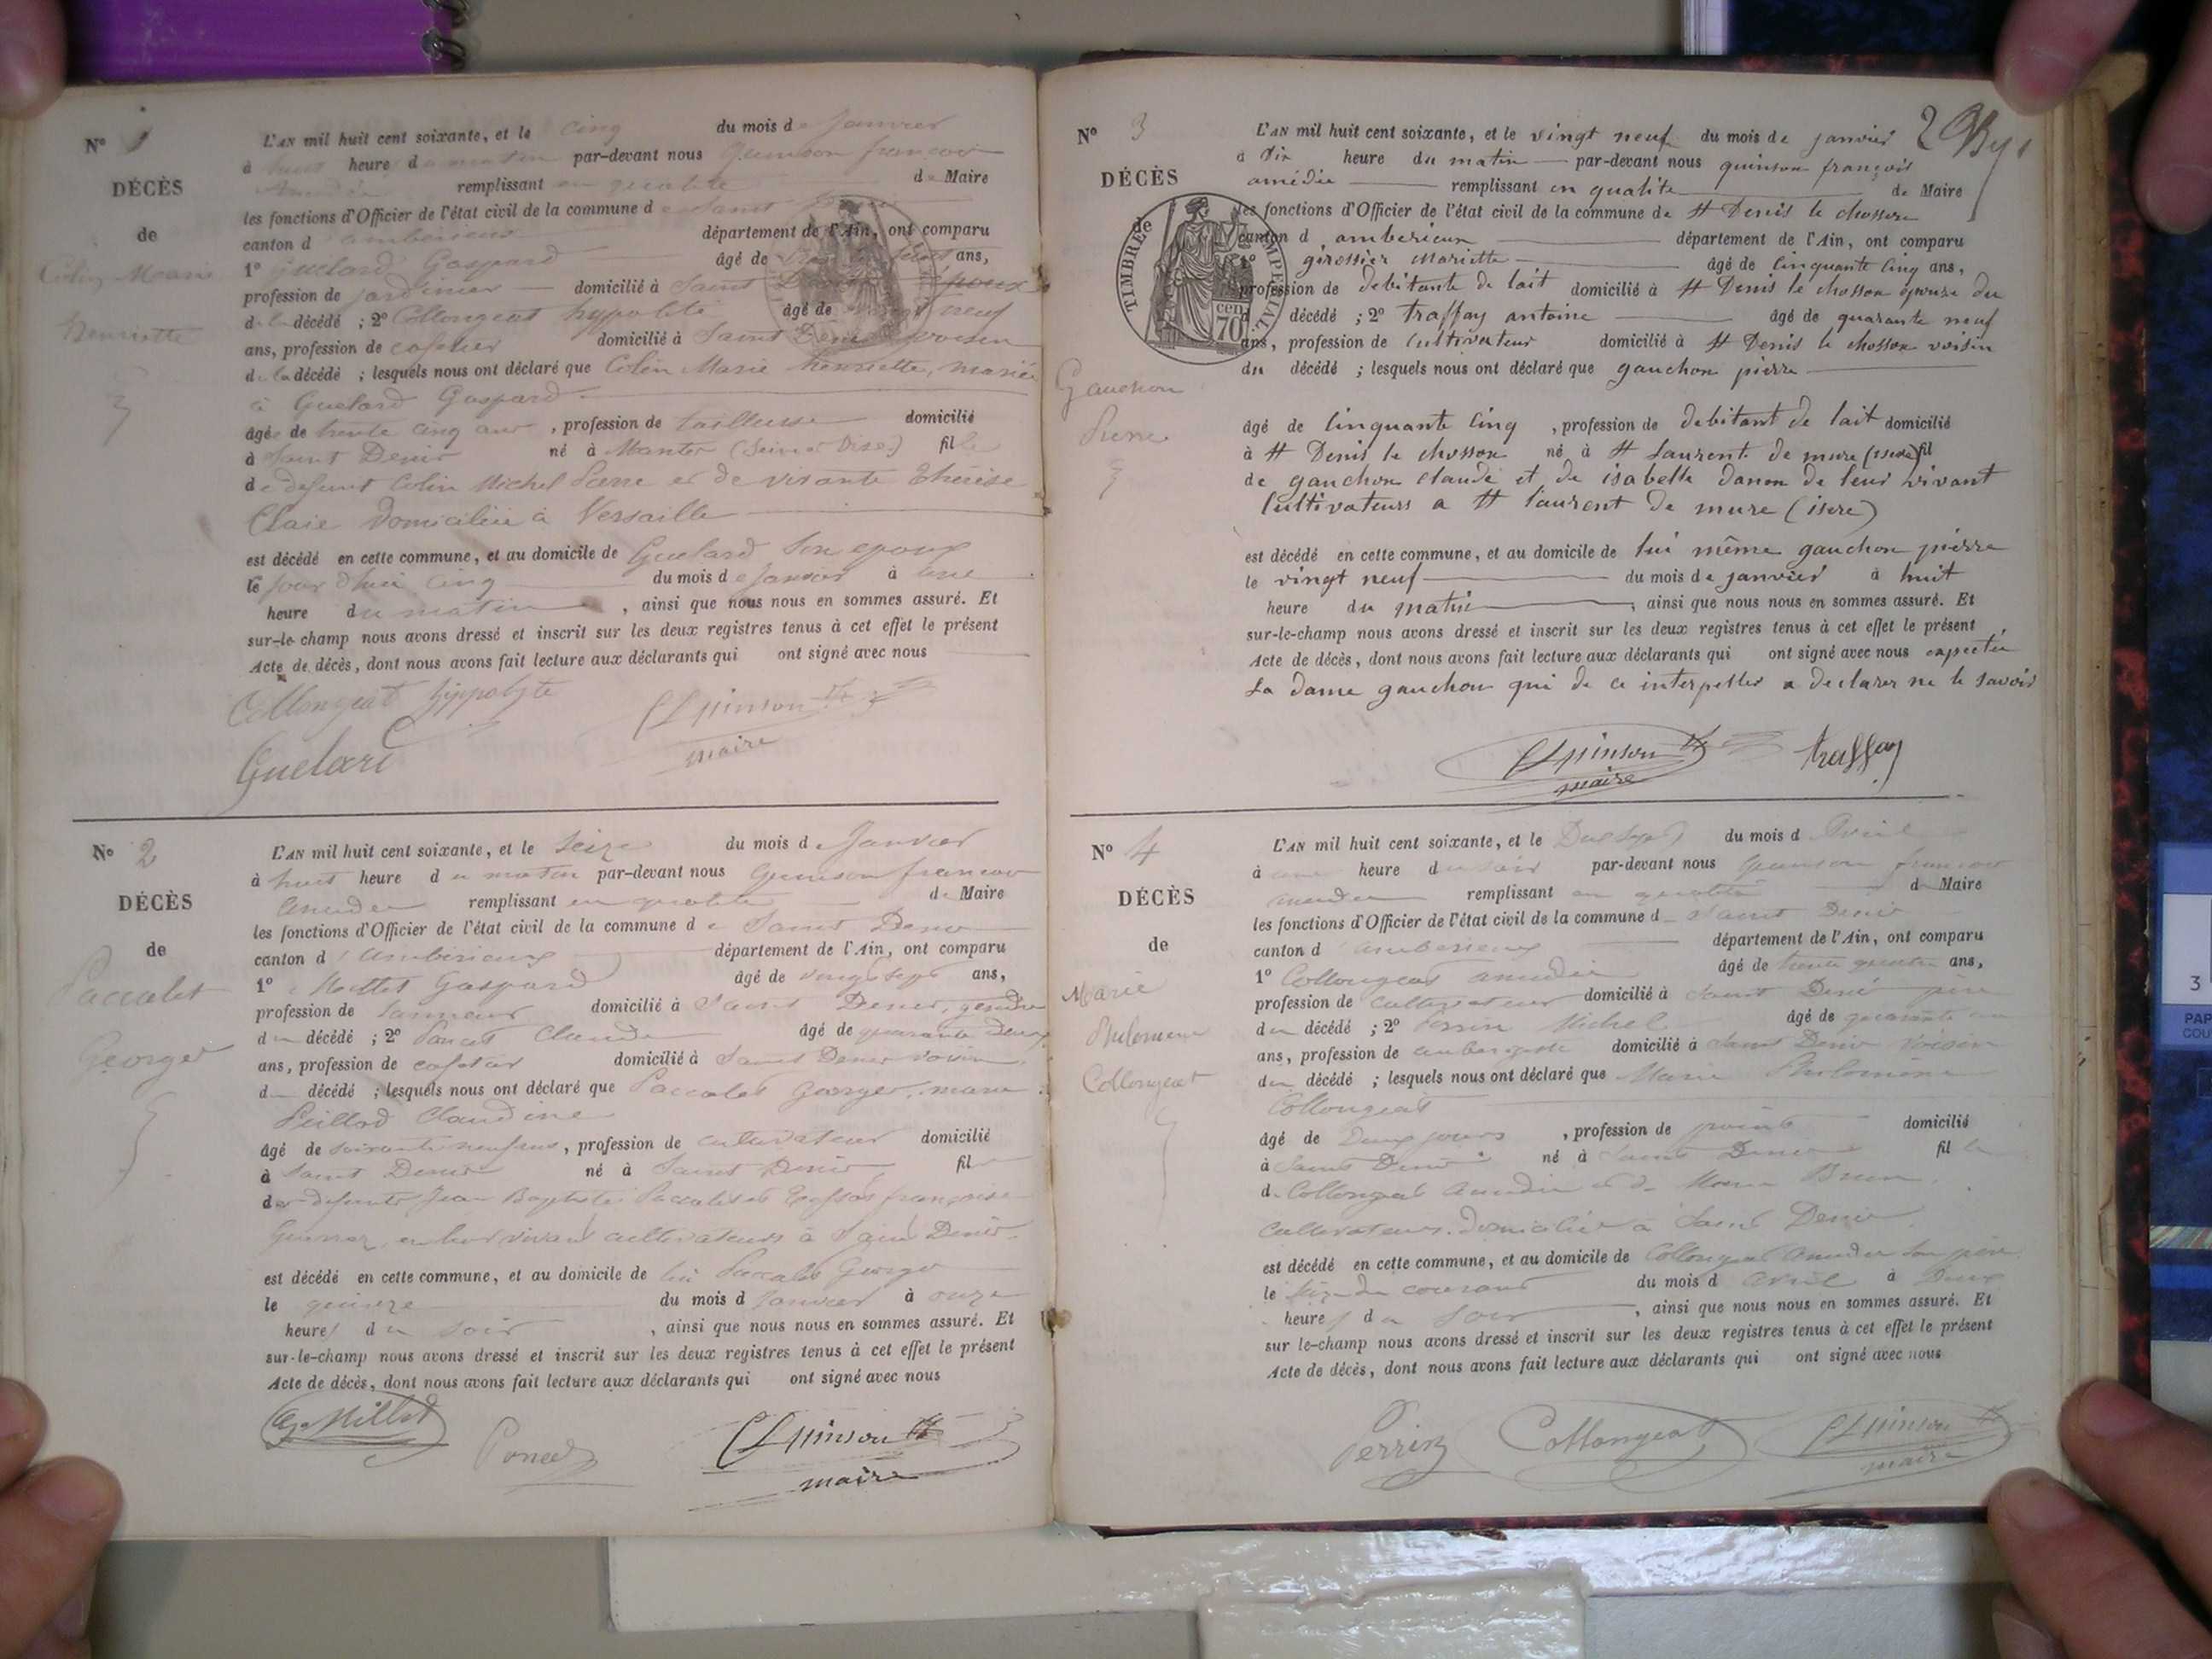 N° 1
DÉCÈS
de
Colin Marie
Henriette
L'AN mil huit cent soixante, et le cinq du mois de Janvier
à huit heure du matin par-devant nous Quinson françois
Amédée remplissant en qualité de Maire
les fonctions d'Officier de l'état civil de la commune de Saint Denis
canton d'ambérieux département de l'Ain, ont comparu
1° Guelard Gaspard âgé de ans,
profession de jardinier domicilié à Saint Denis époux
de la décédé ; 2° Collongeat hyppolite âgé de vingt neuf
ans, profession de cafetier domicilié à Saint Denis voisin
de la décédé ; lesquels nous ont déclaré que Colin Marie henriette, mariée
à Guelard Gaspard
âgée de trente cinq ans, profession de tailleuse domicilié
à Saint Denis né à Mantes (Seine et Oise) fille
de défunt Colin Michel Pierre et de vivante Thérèse
Claie domiciliée à Versaille
est décédé en cette commune, et au domicile de Guelard son epoux
le jour d'hui cinq du mois de Janvier à une
heure du matin, ainsi que nous nous en sommes assuré. Et
sur-le-champ nous avons dressé et inscrit sur les deux registres tenus à cet effet le présent
Acte de décès, dont nous avons fait lecture aux déclarants qui ont signé avec nous
Collongeat hyppolyte
Quinson
maire
Guelard
N° 2
DÉCÈS
de
Paccalet
George
L'AN mil huit cent soixante, et le seize du mois de Janvier
à huit heure du matin par-devant nous Quinson francois
Amédée remplissant en qualité de Maire
les fonctions d'Officier de l'état civil de la commune de Saint Denis
canton d'ambérieux département de l'Ain, ont comparu
1° Millet Gaspard âgé de vingt sept ans,
profession de domicilié à Saint Denis, gendre
du décédé ; 2° Poncet Claude âgé de quarante deux
ans, profession de cafetier domicilié à Saint Denis voisin
du décédé ; lesquels nous ont déclaré que Paccalet George, marié
Claudine
âgé de soixante neuf ans, profession de cultivateur domicilié
à Saint Denis né à Saint Denis fils
des défunts Jean Baptiste Paccalet et françoise
en leur vivant cultivateurs à Saint Denis
est décédé en cette commune, et au domicile de lui Paccalet George
le quinze du mois de Janvier à onze
heures du soir, ainsi que nous nous en sommes assuré. Et
sur-le-champ nous avons dressé et inscrit sur les deux registres tenus à cet effet le présent
Acte de décès, dont nous avons fait lecture aux déclarants qui ont signé avec nous
G. Millet
Poncet
Quinson
maire
2
N° 3
DÉCÈS
de
TIMBRE IMPERIAL
70 cen
Gauchon
Pierre
L'AN mil huit cent soixante, et le vingt neuf du mois de janvier
à dix heure du matin par-devant nous quinson françois
amédée remplissant en qualite de Maire
les fonctions d'Officier de l'état civil de la commune de St Denis le chosson
canton d'amberieux département de l'Ain, ont comparu
1° girossier mariette âgé de cinquante cinq ans,
profession de debitante de lait domicilié à St Denis le chosson epouze du
décédé ; 2° traffay antoine âgé de quarante neuf
ans, profession de cultivateur domicilié à St Denis le chosson voisin
du décédé ; lesquels nous ont déclaré que gauchon pierre
âgé de cinquante cinq, profession de debitant de lait domicilié
à St Denis le chosson né à St Laurent de mure (isere) fil
de gauchon claude et de isabelle danon de leur vivant
cultivateurs a St laurent de mure (isere)
est décédé en cette commune, et au domicile de lui même gauchon pierre
le vingt neuf du mois de janvier à huit
heure du matin, ainsi que nous nous en sommes assuré. Et
sur-le-champ nous avons dressé et inscrit sur les deux registres tenus à cet effet le présent
Acte de décès, dont nous avons fait lecture aux déclarants qui ont signé avec nous expectée
la dame gauchon qui de ce interpeller a declarer ne le savoir
Quinson
maire
traffay
N° 4
DÉCÈS
de
Marie
Philomene
Collongeat
L'AN mil huit cent soixante, et le Dix Sept du mois d'Avril
à une heure du soir par-devant nous Quinson francois
amédée remplissant en qualité de Maire
les fonctions d'Officier de l'état civil de la commune de Saint Denis
canton d'amberieux département de l'Ain, ont comparu
1° Collongeat amédée âgé de trente quatre ans,
profession de cultivateur domicilié à Saint Denis père
du décédé ; 2° Perrin Michel âgé de quarante un
ans, profession de aubergiste domicilié à Saint Denis voisin
du décédé ; lesquels nous ont déclaré que Marie Philomène
Collongeat
âgé de Deux jours, profession de point domicilié
à Saint Denis né à Saint Denis fille
de Collongeat Amédée et de Brun
cultivateurs domiciliés à Saint Denis
est décédé en cette commune, et au domicile de Collongeat Amédée son père
le seize du courant du mois d'avril à Deux
heures du soir, ainsi que nous nous en sommes assuré. Et
sur le-champ nous avons dressé et inscrit sur les deux registres tenus à cet effet le présent
Acte de décès, dont nous avons fait lecture aux déclarants qui ont signé avec nous
Perrin
Collongeat
Quinson
maire
3
PAP
COU